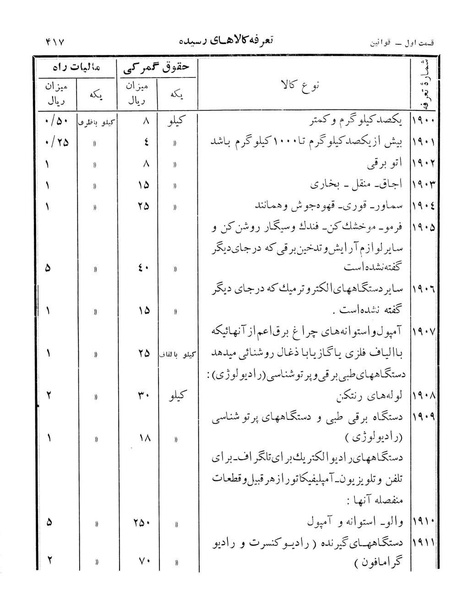 قسمت اول – قوانین تعرفه کالاهای رسیده ۴۱۷
شمارهٔ تعرفه نوع کالا حقوق گمرکی مالیات راه
یکه میزان ریال یکه میزان ریال
۱۹۰۰ یکصد کیلوگرم و کمتر کیلو ۸ کیلو باظرف ۰/۵۰
۱۹۰۱ بیش از یکصد کیلوگرم تا ۱۰۰۰ کیلوگرم باشد » ۴ » ۰/۲۵
۱۹۰۲ اتو برقی » ۸ » ۱
۱۹۰۳ اجاق – منقل – بخاری » ۱۵ » ۱
۱۹۰۴ سماور – قوری – قهوه‌جوش و همانند » ۲۵ » ۱
۱۹۰۵ فرمو – موخشك‌كن – فندك و سیگار روشن‌كن و
سایر لوازم آرایش و تدخین برقی که در جای دیگر
گفته نشده است » ۴۰ » ۵
۱۹۰۶ سایر دستگاههای الکتروترمیك که در جای دیگر
گفته نشده است . » ۱۵ » ۱
۱۹۰۷ آمپول و استوانه های چراغ برق اعم از آنهائیکه
با الیاف فلزی یا گاز یا با ذغال روشنائی میدهد » ۲۵ کیلو بالفاف ۱
دستگاههای طبی برقی و پرتو شناسی (رادیولوژی) :
۱۹۰۸ لوله های رنتکن کیلو ۳۰ » ۲
۱۹۰۹ دستگاه برقی طبی و دستگاههای پرتو شناسی
( رادیولوژی ) » ۱۸ » ۱
دستگاههای رادیو الکتریك برای تلگراف – برای
تلفن و تلویزیون – آمپلیفیکاتور از هر قبیل و قطعات
منفصله آنها :
۱۹۱۰ والو – استوانه و آمپول » ۲۵۰ » ۵
۱۹۱۱ دستگاههای گیرنده ( رادیو کنسرت و رادیو
گرامافون ) » ۷۰ » ۲